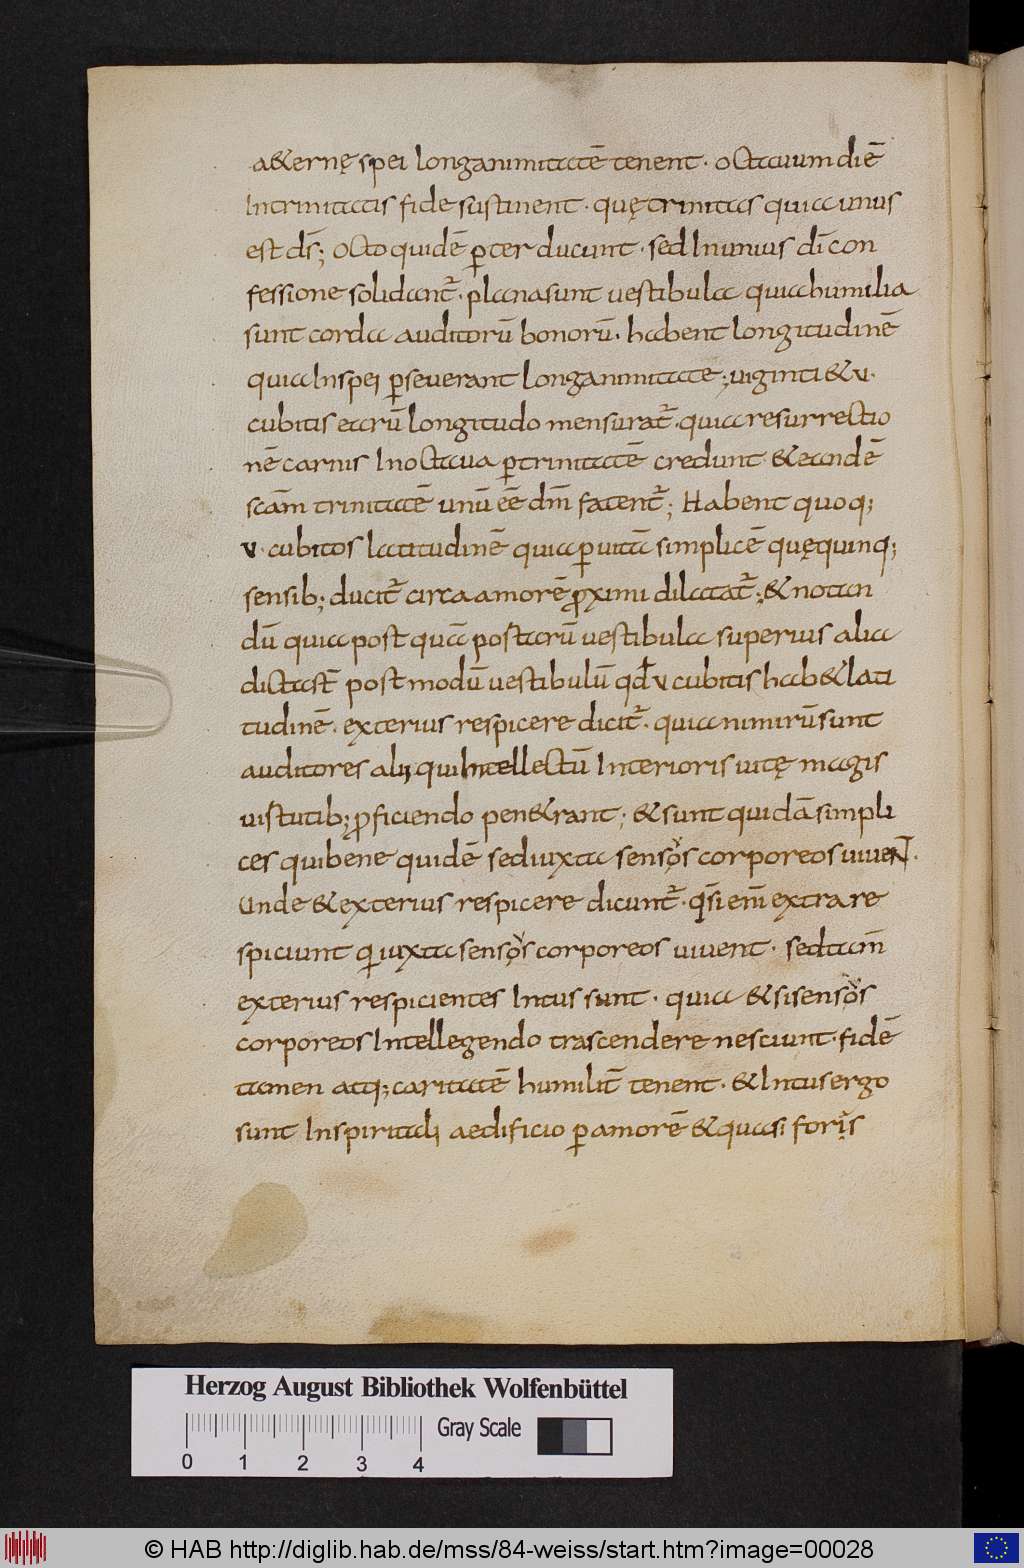 a&ernę spei longanimitatē tenent · octauum diē
Intrinitatis fide sustinent · quę trinitas quia unus
est ds̄; octo quidē p̱ ter ducunt · sed In unius dī con
fessione solidant᷑ · plana sunt uestibula quia humilia
sunt corda auditorū bonorū · habent longitudinē
quia In spei p̱seuerant longanimitate; uiginti & v ·
cubitis earū longitudo mensurat᷑ · quia resurrectio
nē carnis In octaua p̱ trinitatē credunt & eandē
scām trinitatē unū eē dm̄ fatent᷑; Habent quoq;
v · cubitos latitudinē quia p̱ uitā simplicē quę quinq;
sensib; ducit᷑ circa amorē ꝓximi dilatat᷑; & notan
dū quia post quā postarū uestibula superius alia
dicta st̄ post modū uestibulū qđ v cubitis hab& lati
tudinē · exterius respicere dicit᷑ · quia nimirū sunt
auditores alij qui Intellectū Interioris uitę magis
uistutib; ꝓficiendo pen&rant; & sunt quidā simpli
ces qui bene quidē sed iuxta sensos corporeos uiueNT ·
Unde & exterius respicere dicunt᷑ · qs̄i em̄ extra re
spiciunt qui iuxta sensos corporeos uiuent · sed tam̄
exterius respicientes Intus sunt · quia & si sensos
corporeos Intellegendo trascendere nesciunt · fidē
tamen atq; caritatē humilit̄ tenent · & Intus ergo
sunt In spiritali aedificio p̱ amorē & quasi foris
Herzog August Bibliothek Wolfenbüttel
0 1 2 3 4 Gray Scale
© HAB http://diglib.hab.de/mss/84-weiss/start.htm?image=00028